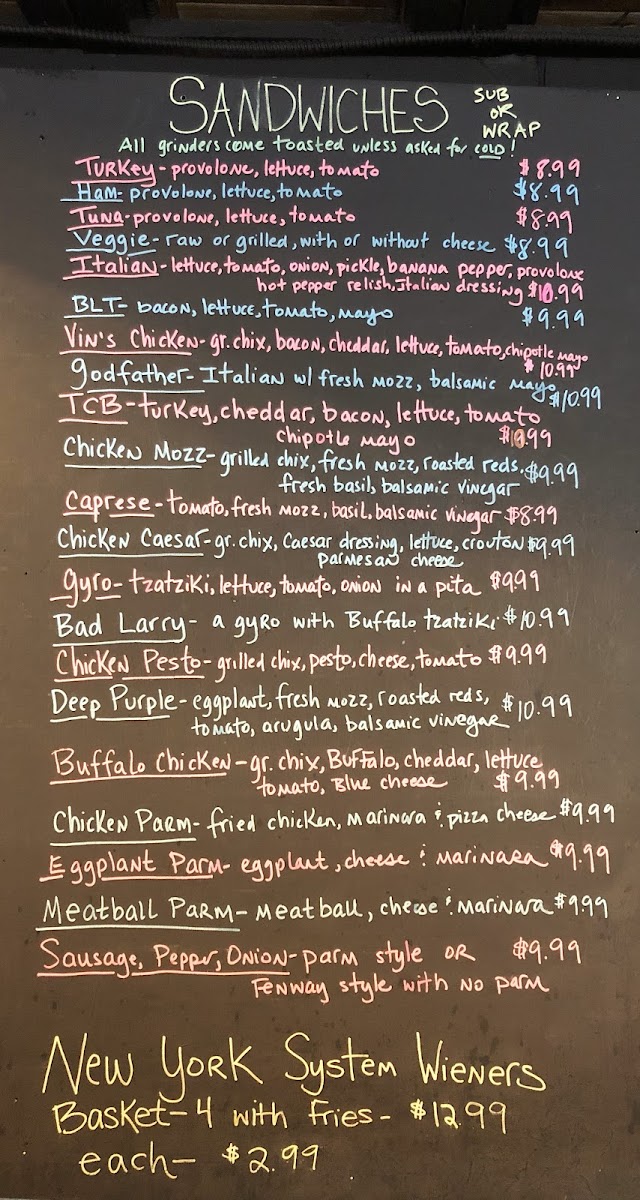 SANDWICHES
SUB
OR
WRAP
All grinders come toasted unless asked for COLD!
Turkey - provolone, lettuce, tomato $8.99
Ham - provolone, lettuce, tomato $8.99
Tuna - provolone, lettuce, tomato $8.99
Veggie - raw or grilled, with or without cheese $8.99
Italian - lettuce, tomato, onion, pickle, banana pepper, provolone
hot pepper relish, Italian dressing $10.99
BLT - bacon, lettuce, tomato, mayo $9.99
Vin's Chicken - gr. chix, bacon, cheddar, lettuce, tomato, chipotle mayo
$10.99
godfather - Italian w/ fresh mozz, balsamic mayo $10.99
TCB - turkey, cheddar, bacon, lettuce, tomato
chipotle mayo $10.99
Chicken Mozz - grilled chix, fresh mozz, roasted reds, $9.99
fresh basil, balsamic vinegar
Caprese - tomato, fresh mozz, basil, balsamic vinegar $8.99
Chicken Caesar - gr. chix, Caesar dressing, lettuce, crouton $9.99
parmesan cheese
gyro - tzatziki, lettuce, tomato, onion in a pita $9.99
Bad Larry - a gyro with Buffalo tzatziki $10.99
Chicken Pesto - grilled chix, pesto, cheese, tomato $9.99
Deep Purple - eggplant, fresh mozz, roasted reds, $10.99
tomato, arugula, balsamic vinegar
Buffalo Chicken - gr. chix, Buffalo, cheddar, lettuce
tomato, Blue cheese $9.99
Chicken Parm - fried chicken, marinara & pizza cheese $9.99
Eggplant Parm - eggplant, cheese & marinara $9.99
Meatball Parm - meatball, cheese & marinara $9.99
Sausage, Pepper, Onion - parm style or $9.99
Fenway style with no parm
New York System Wieners
Basket - 4 with fries - $12.99
each - $2.99